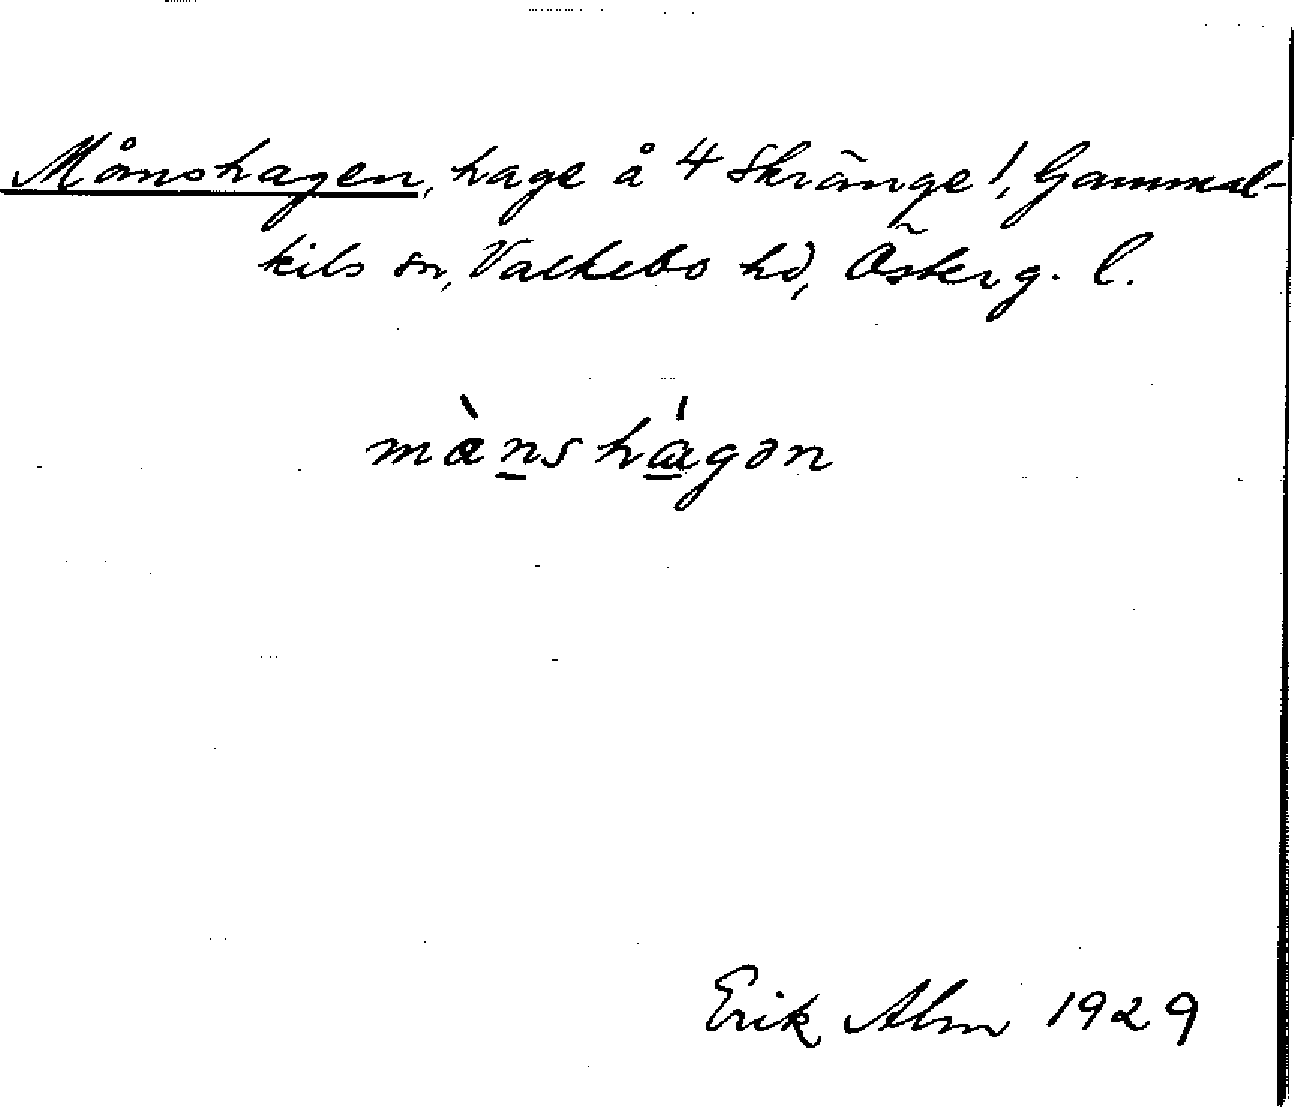 Månshagen, hage å 4 Skränge!, Gammal-
kils sn, Valkebo hd, Österg. l.
mànshágən
Erik Alm 1929